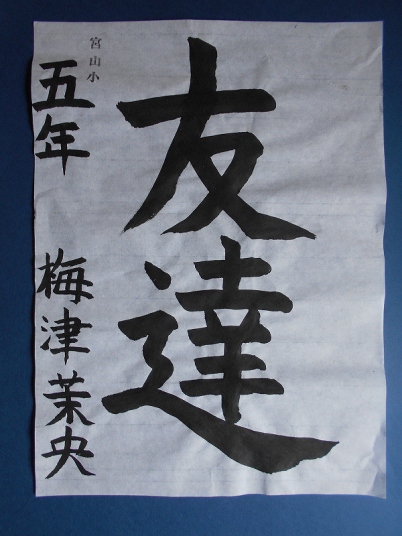 友達
宮山小
五年 梅津茉央